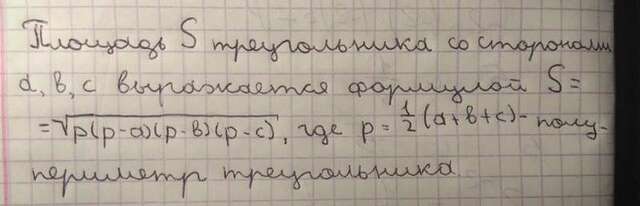 Площадь S треугольника со сторонами
a, b, c выражается формулой S=
=√p(p-a)(p-b)(p-c), где p=1/2(a+b+c)-полу-
периметр треугольника.